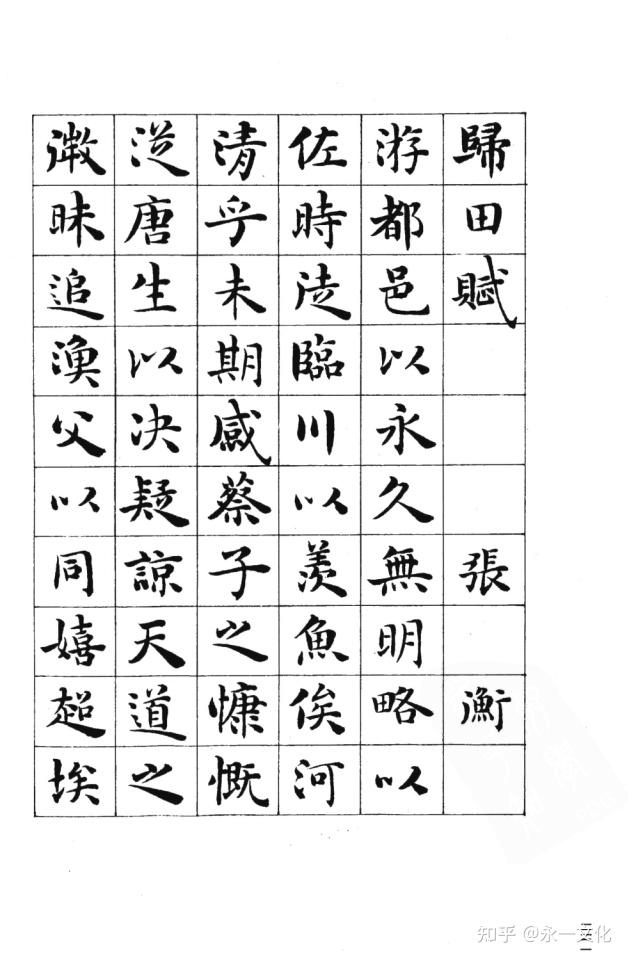 歸田賦 張 衡
游都邑以永久無明略以
佐時徒臨川以羨魚俟河
清乎未期感蔡子之慷慨
從唐生以决疑諒天道之
微昧追漁父以同嬉超埃
知乎 @永一文化